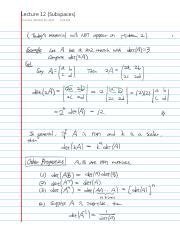 Lecture 12 (Subspaces)
(Today's material will NOT appear on Midterm 2)
Example: Let A be a 2x2 matrix with det(A)=3
Compute det(2A)
Sol
Say A = [a b; c d]. Then 2A = [2a 2b; 2c 2d]
det(2A) = |2a 2b; 2c 2d| = 2 |a b; 2c 2d| = 2·2 |a b; c d|
det(2A) = 2² det(A)
In general, if A is nxn and k is a scalar, then
Other Properties: A, B are nxn matrices.
(1) det(AB) = det(A) det(B)
(2)
(3) Suppose A is invertible, then
det(A⁻¹) = 1/det(A)